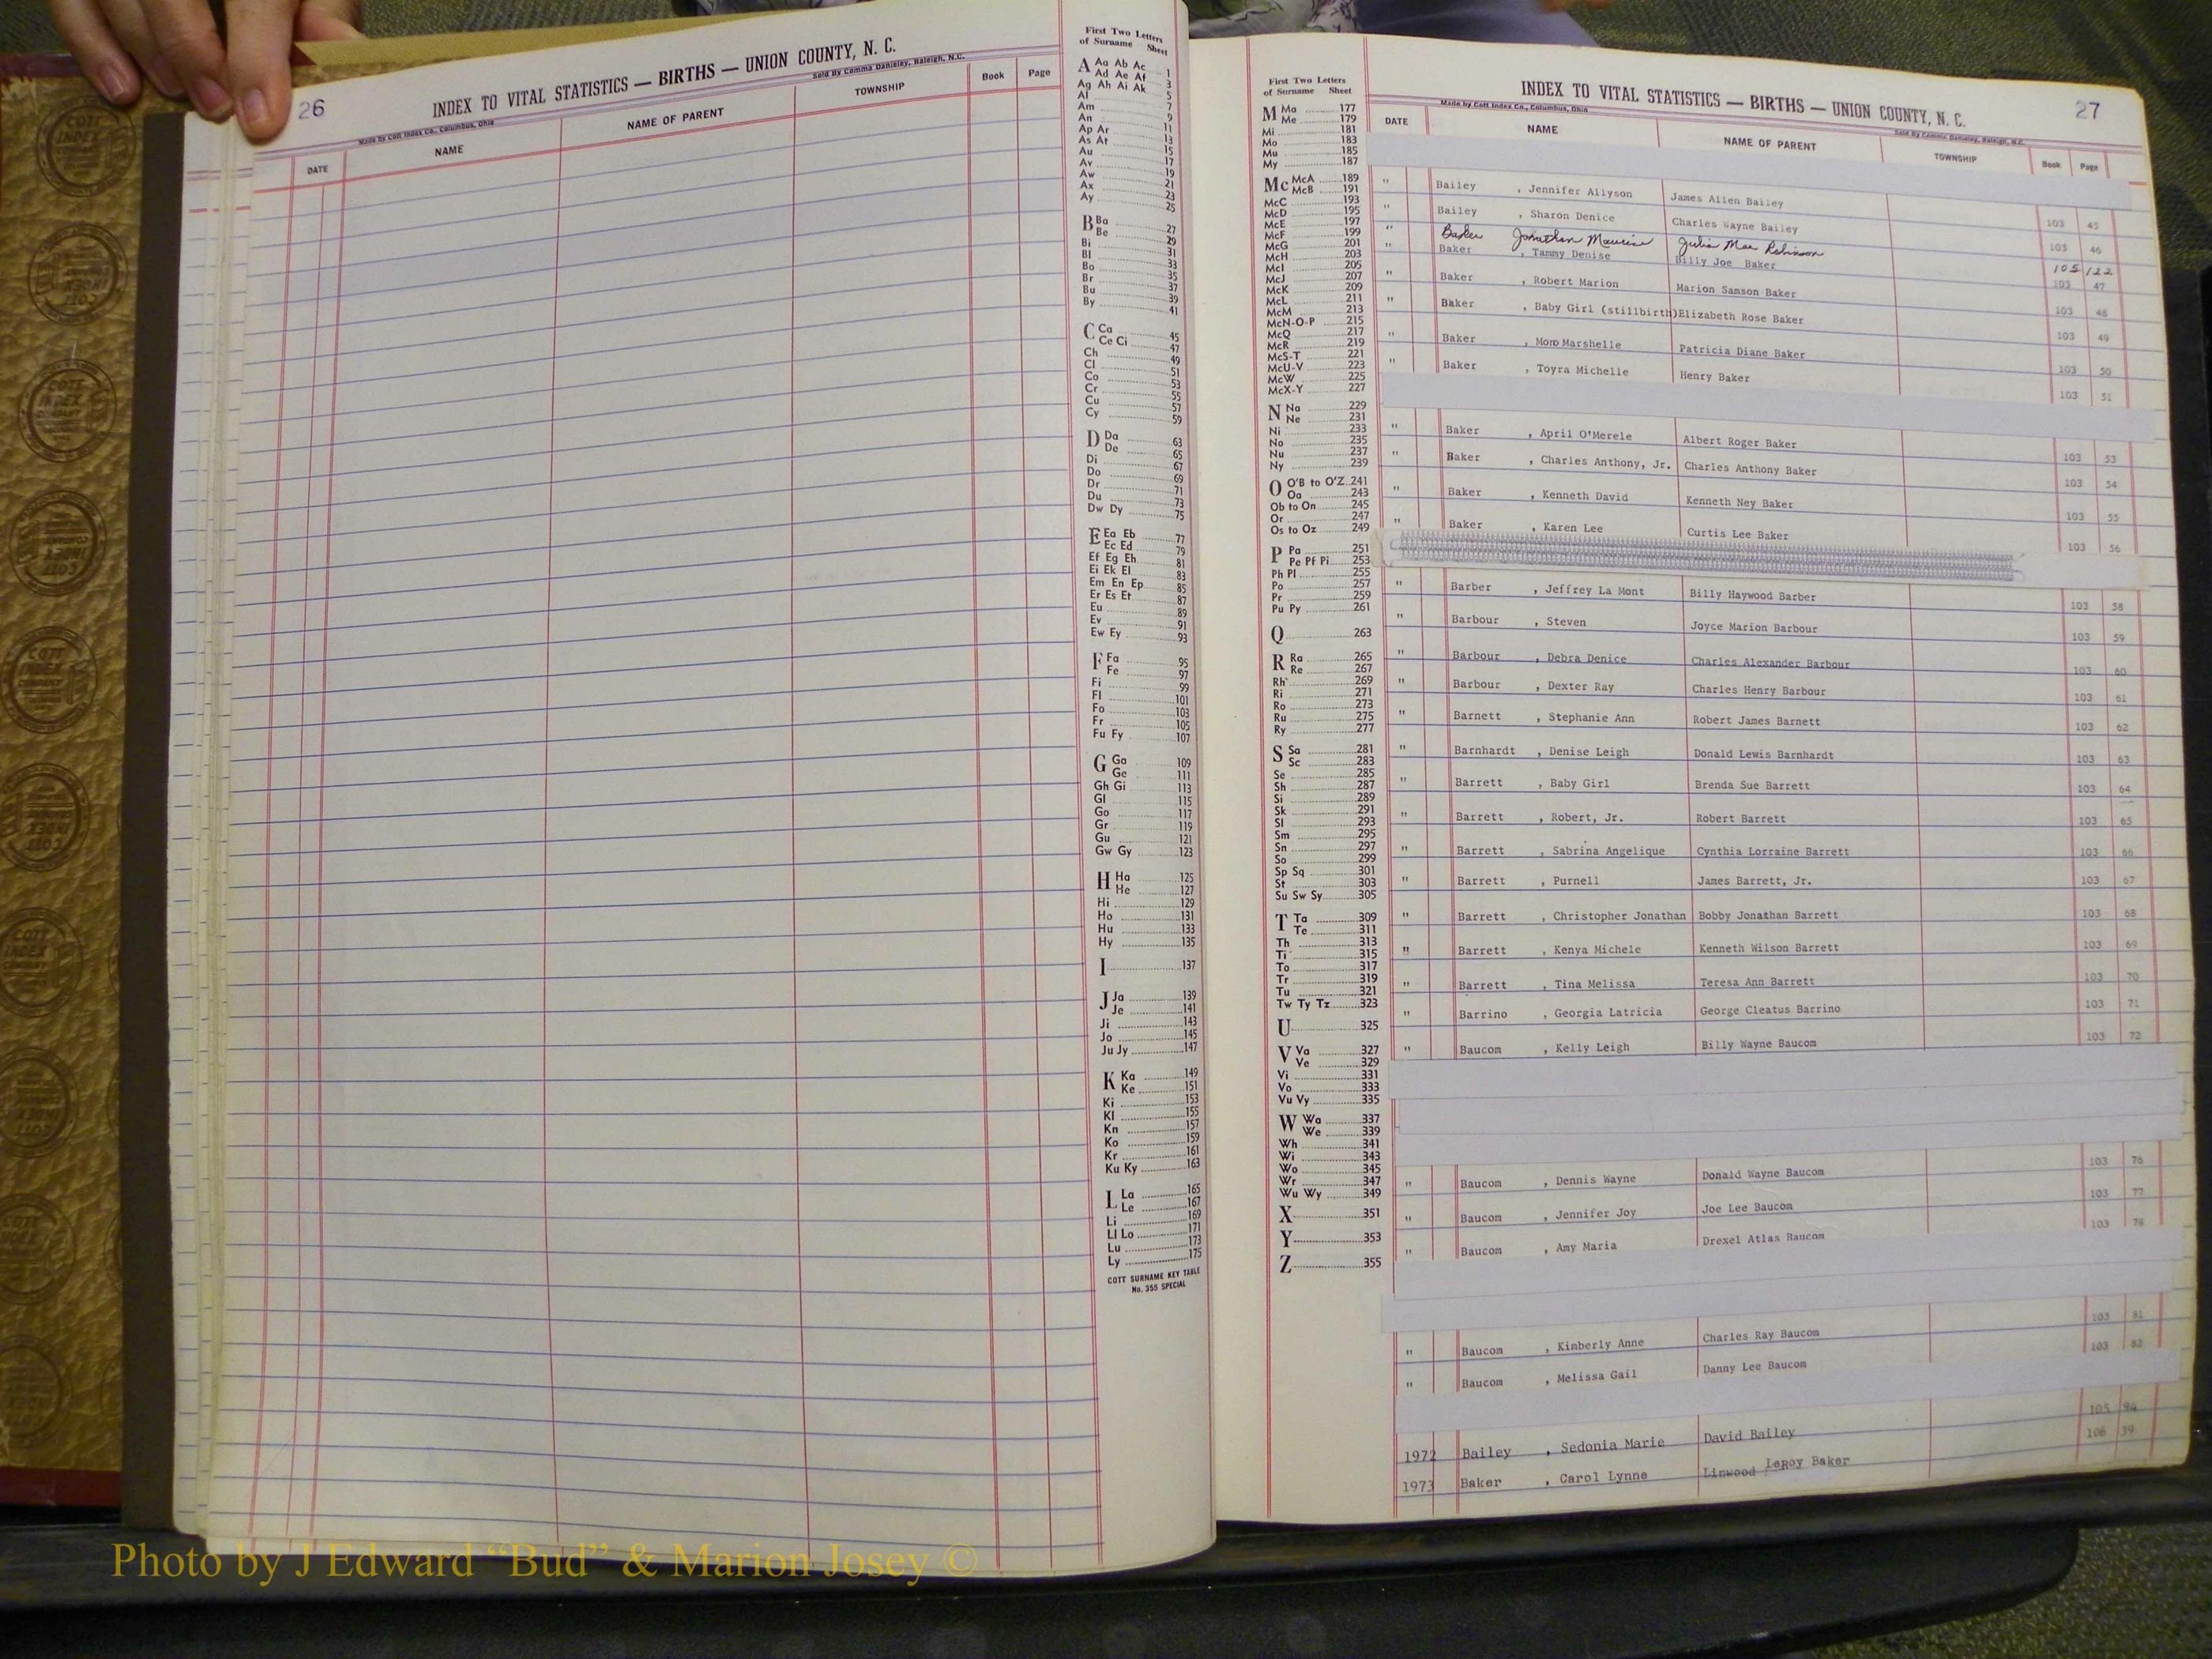 26
INDEX TO VITAL STATISTICS — BIRTHS — UNION COUNTY, N. C.
Made by Cott Index Co., Columbus, Ohio
Sold By Comma Danieley, Raleigh, N.C.
DATE NAME NAME OF PARENT TOWNSHIP Book Page
First Two Letters
of Surname Sheet
A Aa Ab Ac 1
Ad Ae Af 3
Ag Ah Ai Ak 5
Al 7
Am 9
An 11
Ap Ar 13
As At 15
Au 17
Av 19
Aw 21
Ax 23
Ay 25
B Ba 27
Be 29
Bi 31
Bl 33
Bo 35
Br 37
Bu 39
By 41
C Ca 45
Ce Ci 47
Ch 49
Cl 51
Co 53
Cr 55
Cu 57
Cy 59
D Da 63
De 65
Di 67
Do 69
Dr 71
Du 73
Dw Dy 75
E Ea Eb 77
Ec Ed 79
Ef Eg Eh 81
Ei Ek El 83
Em En Ep 85
Er Es Et 87
Eu 89
Ev 91
Ew Ey 93
F Fa 95
Fe 97
Fi 99
Fl 101
Fo 103
Fr 105
Fu Fy 107
G Ga 109
Ge 111
Gh Gi 113
Gl 115
Go 117
Gr 119
Gu 121
Gw Gy 123
H Ha 125
He 127
Hi 129
Ho 131
Hu 133
Hy 135
I 137
J Ja 139
Je 141
Ji 143
Jo 145
Ju Jy 147
K Ka 149
Ke 151
Ki 153
Kl 155
Kn 157
Ko 159
Kr 161
Ku Ky 163
L La 165
Le 167
Li 169
Ll Lo 171
Lu 173
Ly 175
COTT SURNAME KEY TABLE
No. 355 SPECIAL
First Two Letters
of Surname Sheet
M Ma 177
Me 179
Mi 181
Mo 183
Mu 185
My 187
Mc McA 189
McB 191
McC 193
McD 195
McE 197
McF 199
McG 201
McH 203
McI 205
McJ 207
McK 209
McL 211
McM 213
McN-O-P 215
McQ 217
McR 219
McS-T 221
McU-V 223
McW 225
McX-Y 227
N Na 229
Ne 231
Ni 233
No 235
Nu 237
Ny 239
O O'B to O'Z 241
Oa 243
Ob to On 245
Or 247
Os to Oz 249
P Pa 251
Pe Pf Pi 253
Ph Pl 255
Po 257
Pr 259
Pu Py 261
Q 263
R Ra 265
Re 267
Rh 269
Ri 271
Ro 273
Ru 275
Ry 277
S Sa 281
Sc 283
Se 285
Sh 287
Si 289
Sk 291
Sl 293
Sm 295
Sn 297
So 299
Sp Sq 301
St 303
Su Sw Sy 305
T Ta 309
Te 311
Th 313
Ti 315
To 317
Tr 319
Tu 321
Tw Ty Tz 323
U 325
V Va 327
Ve 329
Vi 331
Vo 333
Vu Vy 335
W Wa 337
We 339
Wh 341
Wi 343
Wo 345
Wr 347
Wu Wy 349
X 351
Y 353
Z 355
INDEX TO VITAL STATISTICS — BIRTHS — UNION COUNTY, N. C.
27
Made by Cott Index Co., Columbus, Ohio
Sold By Comma Danieley, Raleigh, N.C.
DATE NAME NAME OF PARENT TOWNSHIP Book Page
" Bailey , Jennifer Allyson James Allen Bailey 103 45
" Bailey , Sharon Denice Charles Wayne Bailey 103 46
" Baker Jonathan Maurice Julia Mae Robinson 105 122
" Baker , Tammy Denise Billy Joe Baker 103 47
Baker , Robert Marion Marion Samson Baker 103 48
" Baker , Baby Girl (stillbirth) Elizabeth Rose Baker 103 49
" Baker , Moro Marshelle Patricia Diane Baker 103 50
" Baker , Toyra Michelle Henry Baker 103 51
" Baker , April O'Merele Albert Roger Baker 103 53
" Baker , Charles Anthony, Jr. Charles Anthony Baker 103 54
" Baker , Kenneth David Kenneth Ney Baker 103 55
" Baker , Karen Lee Curtis Lee Baker 103 56
" Barber , Jeffrey La Mont Billy Haywood Barber 103 58
" Barbour , Steven Joyce Marion Barbour 103 59
" Barbour , Debra Denice Charles Alexander Barbour 103 60
" Barbour , Dexter Ray Charles Henry Barbour 103 61
" Barnett , Stephanie Ann Robert James Barnett 103 62
" Barnhardt , Denise Leigh Donald Lewis Barnhardt 103 63
" Barrett , Baby Girl Brenda Sue Barrett 103 64
" Barrett , Robert, Jr. Robert Barrett 103 65
" Barrett , Sabrina Angelique Cynthia Lorraine Barrett 103 66
" Barrett , Purnell James Barrett, Jr. 103 67
" Barrett , Christopher Jonathan Bobby Jonathan Barrett 103 68
" Barrett , Kenya Michele Kenneth Wilson Barrett 103 69
" Barrett , Tina Melissa Teresa Ann Barrett 103 70
" Barrino , Georgia Latricia George Cleatus Barrino 103 71
" Baucom , Kelly Leigh Billy Wayne Baucom 103 72
" Baucom , Dennis Wayne Donald Wayne Baucom 103 76
" Baucom , Jennifer Joy Joe Lee Baucom 103 77
" Baucom , Amy Maria Drexel Atlas Baucom 103 78
" Baucom , Kimberly Anne Charles Ray Baucom 103 81
" Baucom , Melissa Gail Danny Lee Baucom 103 82
1972 Bailey , Sedonia Marie David Bailey 105 94
1973 Baker , Carol Lynne Linwood LeRoy Baker 106 39
Photo by J Edward “Bud” & Marion Josey ©